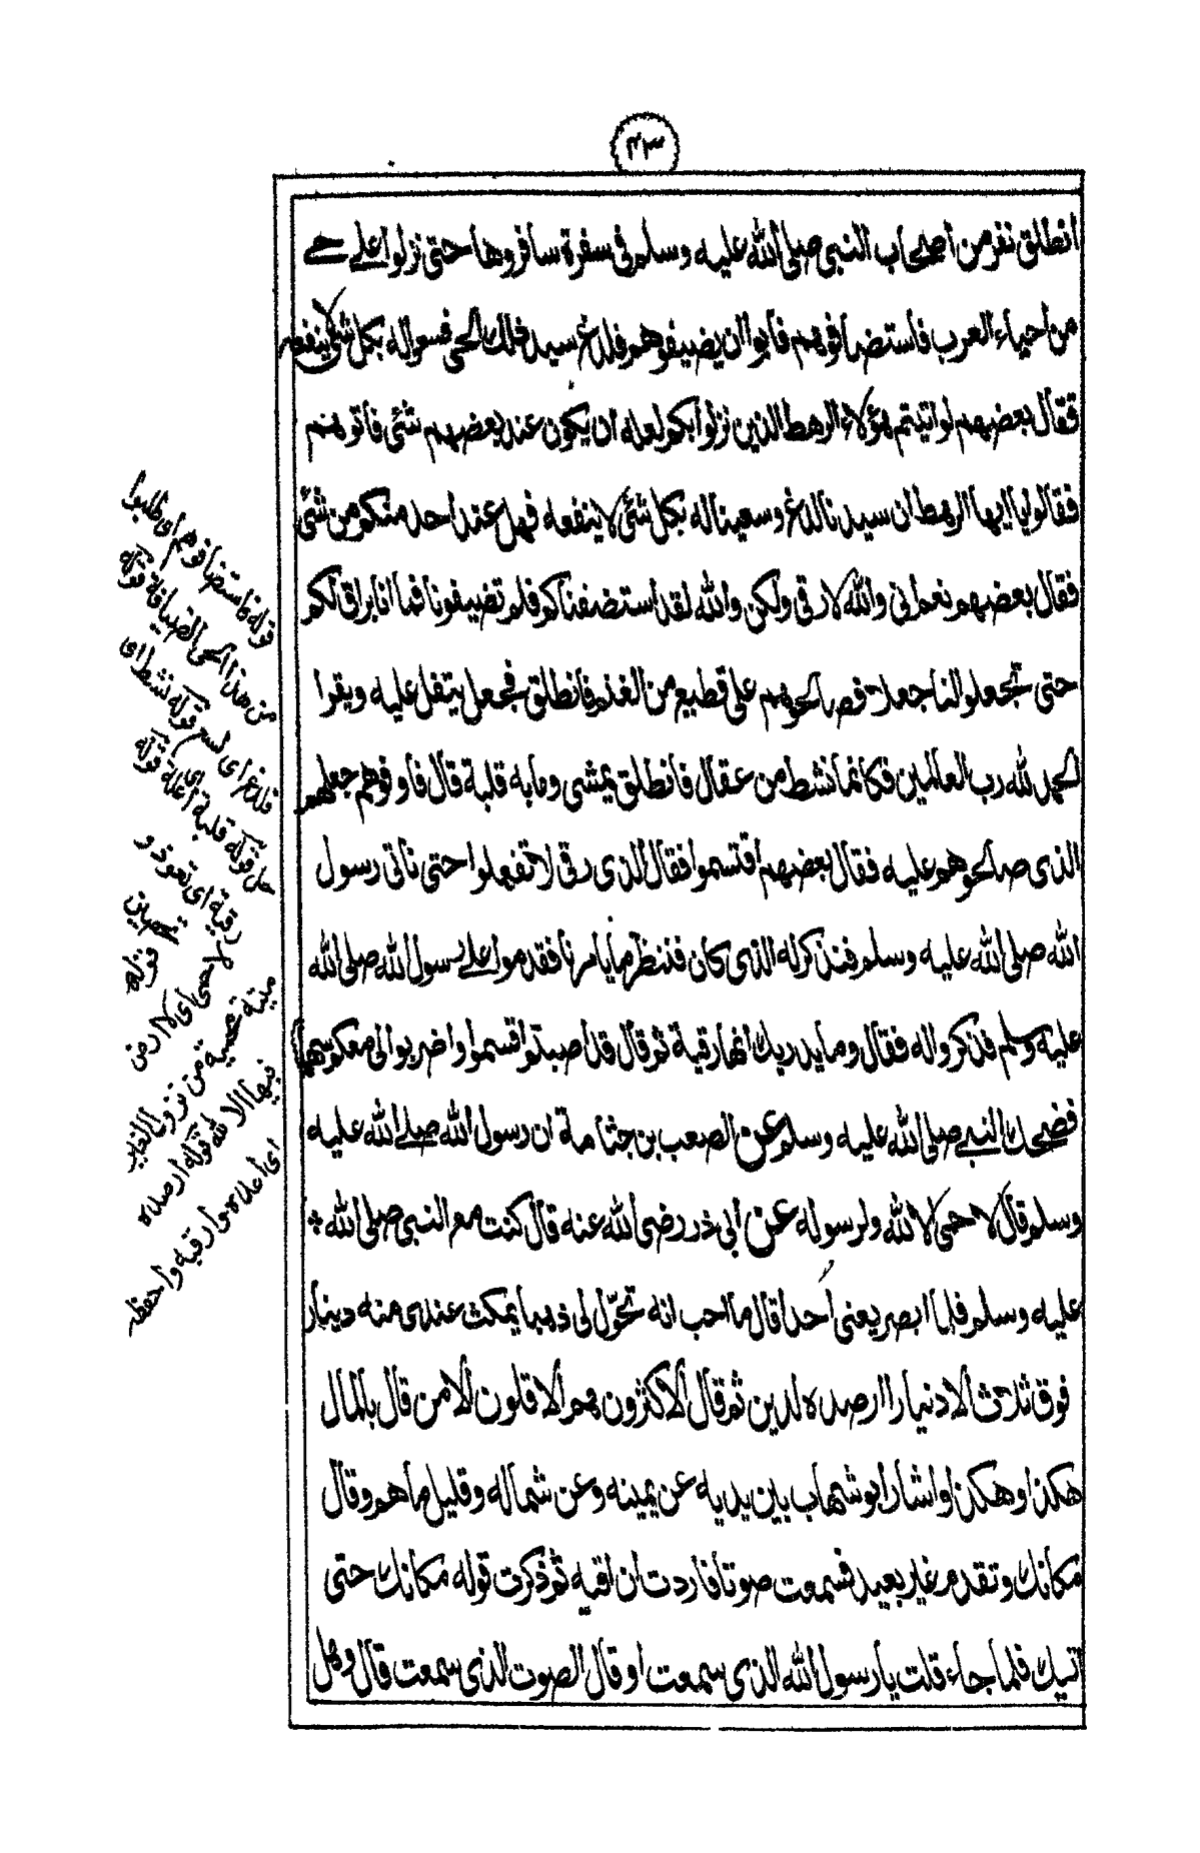 ٤٣
انطلق نفر من اصحاب النبي صلى الله عليه وسلم في سفرة سافروها حتى نزلوا على حي
من احياء العرب فاستضافوهم فابوا ان يضيفوهم فلدغ سيد ذلك الحي فسعوا له بكل شئ لا ينفعه
فقال بعضهم لو اتيتم هؤلاء الرهط الذين نزلوا بكم لعله ان يكون عند بعضهم شئ فاتوهم
فقالوا يا ايها الرهط ان سيدنا لدغ وسعينا له بكل شئ لا ينفعه فهل عند احد منكم من شئ
فقال بعضهم نعم اني والله لارقي ولكن والله لقد استضفناكم فلم تضيفونا فما انا براق لكم
حتى تجعلوا لنا جعلا فصالحوهم على قطيع من الغنم فانطلق فجعل يتفل عليه ويقرا
الحمد لله رب العالمين فكانما نشط من عقال فانطلق يمشي وما به قلبة قال فاوفوهم جعلهم
الذي صالحوهم عليه فقال بعضهم اقتسموا فقال الذي رقى لا تفعلوا حتى ناتي رسول
الله صلى الله عليه وسلم فنذكر له الذي كان فننظر ما يامرنا فقدموا على رسول الله صلى الله
عليه وسلم فذكروا له فقال وما يدريك انها رقية ثم قال قد اصبتم اقسموا واضربوا لي معكم سهما
فضحك النبي صلى الله عليه وسلم عن الصعب بن جثامة ان رسول الله صلى الله عليه
وسلم قال لا حمى الا لله ولرسوله عن ابي ذر رضي الله عنه قال كنت مع النبي صلى الله
عليه وسلم فلما ابصر يعني احدا قال ما احب انه تحول لي ذهبا يمكث عندي منه دينار
فوق ثلاث الا دنيارا ارصده لدين ثم قال الاكثرون هم الاقلون الا من قال بالمال
هكذا وهكذا واشار ابو شهاب بين يديه عن يمينه وعن شماله وقليل ما هم وقال
مكانك وتقدم غير بعيد فسمعت صوتا فاردت ان اقيه ثم ذكرت قوله مكانك حتى
اتيك فلما جاء قلت يا رسول الله الذي سمعت او قال الصوت الذي سمعت قال وهل
قوله فاستضافوهم اى طلبوا
من هذا الحى الضيافة قوله
فلدغ اى لسع قوله نشط اى
حل قوله قلبة اى علة قوله
رقية اى تعوذ و
قوله
لا حمى اى لا ارض